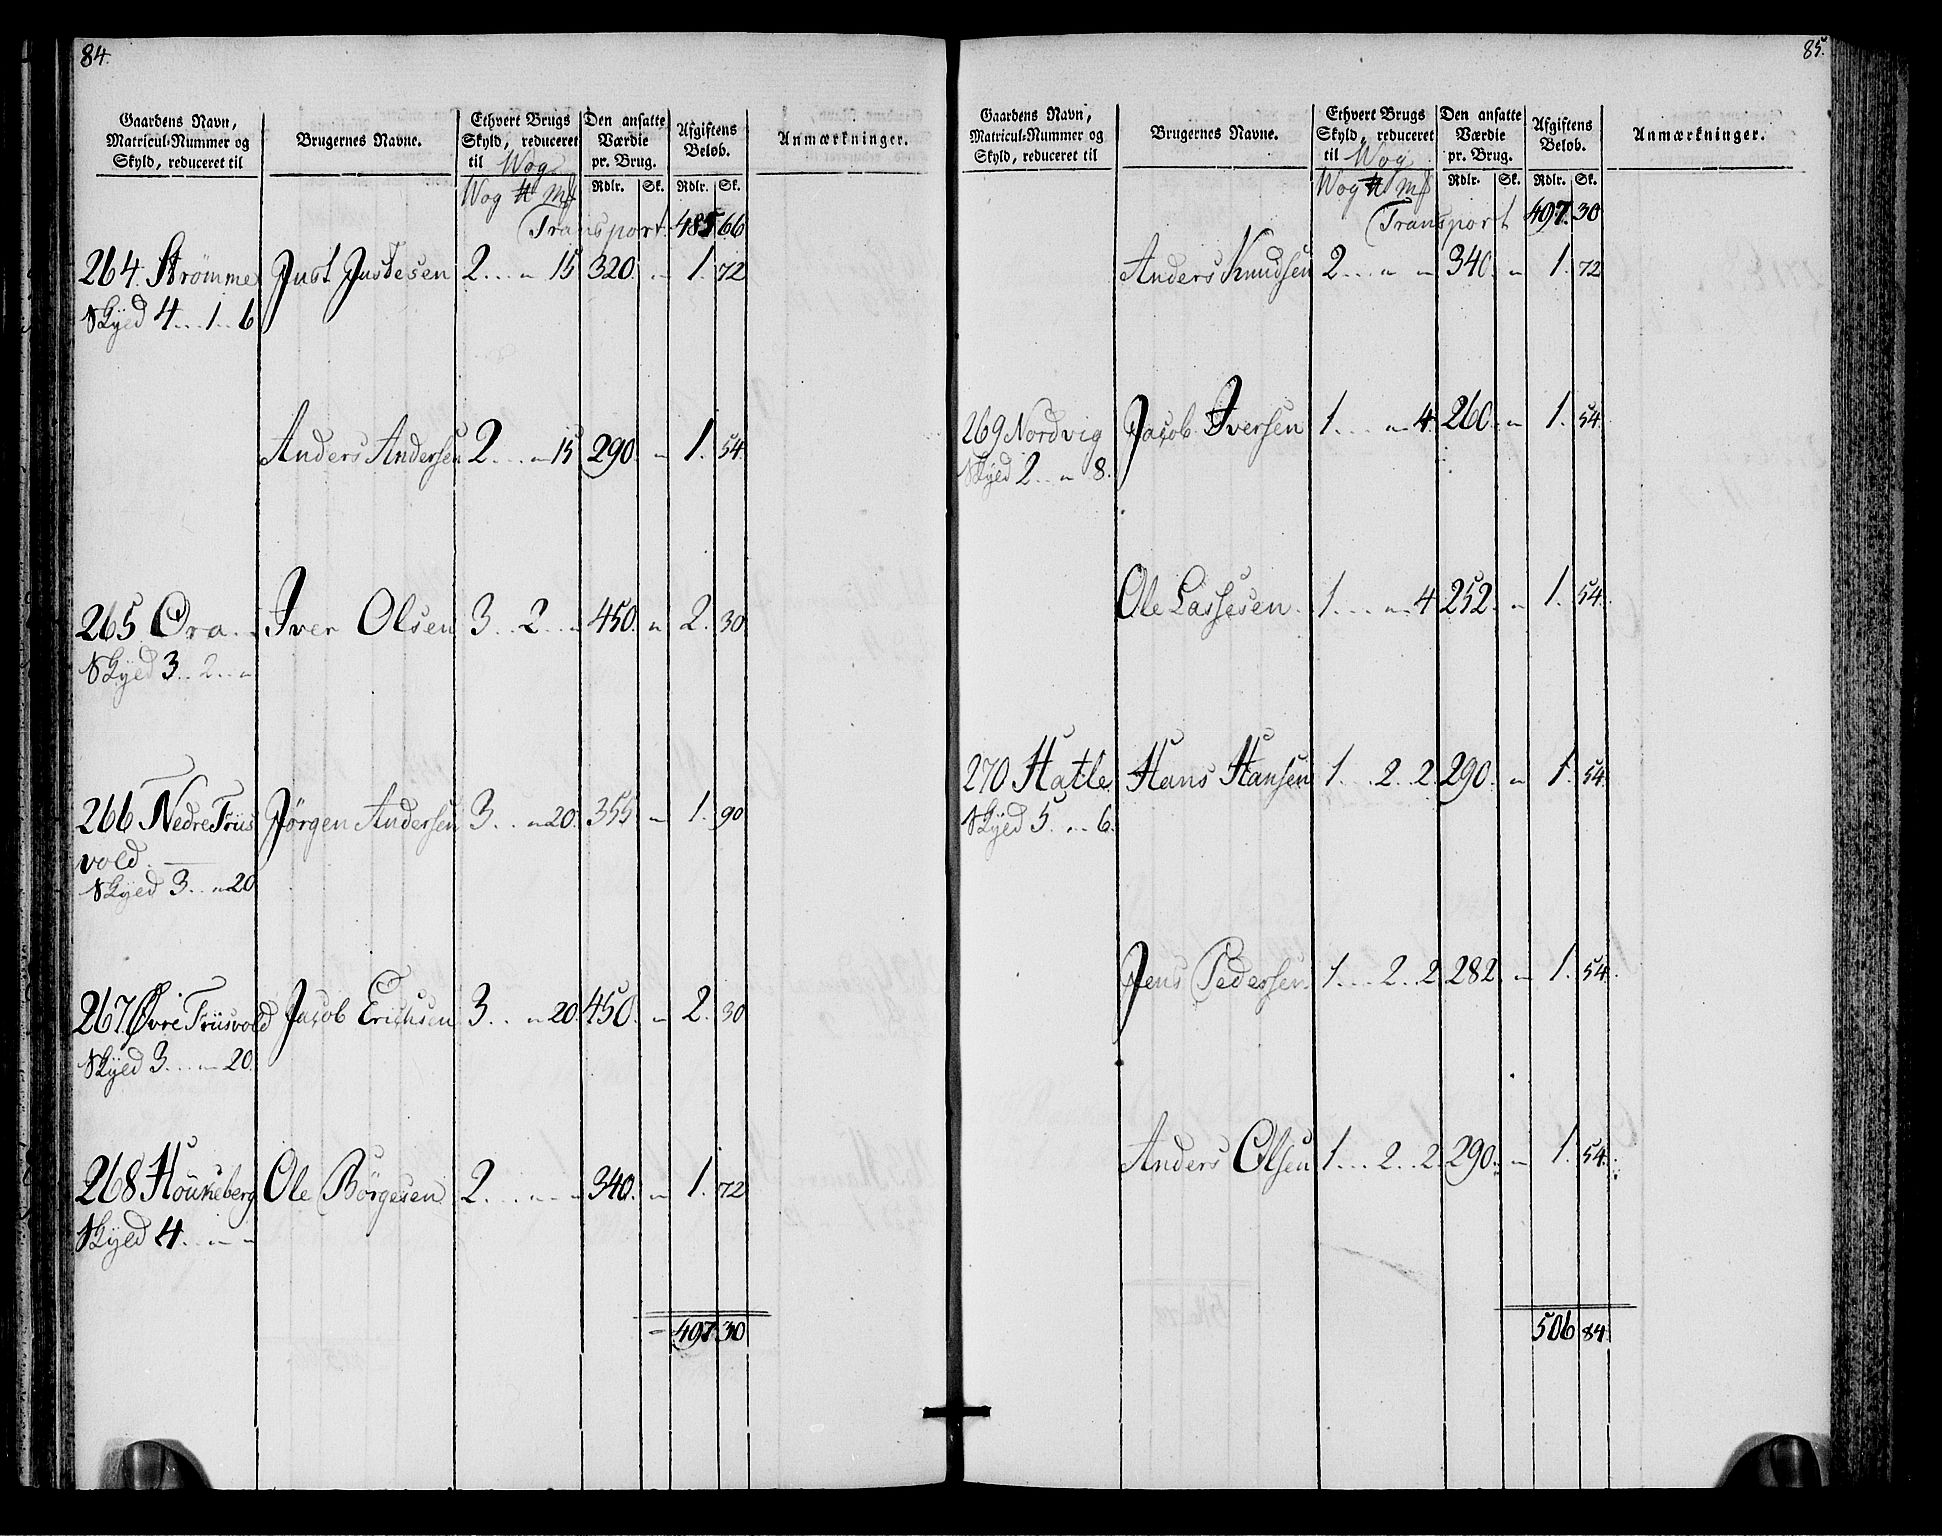 84.
Gaardens Navn, Matricul-Nummer og Skyld, reduceret til
Brugernes Navne.
Ethvert Brugs Skyld, reduceret til Wog
Den ansatte Værdie pr. Brug.
Afgiftens Beløb.
Anmærkninger.
Wog ℔ Mk Rdlr. Sk. Rdlr. Sk.
Transport. 485 66
264. Strømme Just Justesen 2 . . „ 15 320. „ 1. 72
Skyld 4 . . 1 . . 6
Anders Andersen 2 . . . „ 15 290. „ 1. 54
265 Ora . . Iver Olsen 3 . . 2 . . „ 450. „ 2. 30
Skyld 3 . . 2 . . „
266 Nedre Triis Jørgen Andersen 3 . . „ 20. 355 „ 1. 90
vold.
Skyld 3 . . „ 20
267 Øvre Triisvold Jacob Erichsen 3 . . „ 20. 450. „ 2. 30
Skyld 3 . . . „ 20.
268 Houkeberg Ole Børgesen 2 . . . „ . „ 340. „ 1. 72
Skyld 4 . . „ „
497. 30
85.
Gaardens Navn, Matricul-Nummer og Skyld, reduceret til
Brugernes Navne.
Ethvert Brugs Skyld, reduceret til Wog
Den ansatte Værdie pr. Brug.
Afgiftens Beløb.
Anmærkninger.
Wog ℔ Mk Rdlr. Sk. Rdlr. Sk.
Transport 497. 30
Anders Knudsen 2 . . . „ „ 340. „ 1. 72
269 Nordvig Jacob Iversen 1 . . . „ 4 260. „ 1. 54
Skyld 2 . . „ 8.
Ole Lassesen. 1 . . . „ . 4 252. „ 1. 54.
270 Hatle Hans Hansen 1 . . . 2 . . 2 290. „ 1. 54
Skyld 5 . . . 6.
Jens Pedersen 1 . . . 2 . . 2 282. „ 1. 54.
Anders Olsen 1 . . . 2 . . 2. 290. „ 1. 54.
506 84